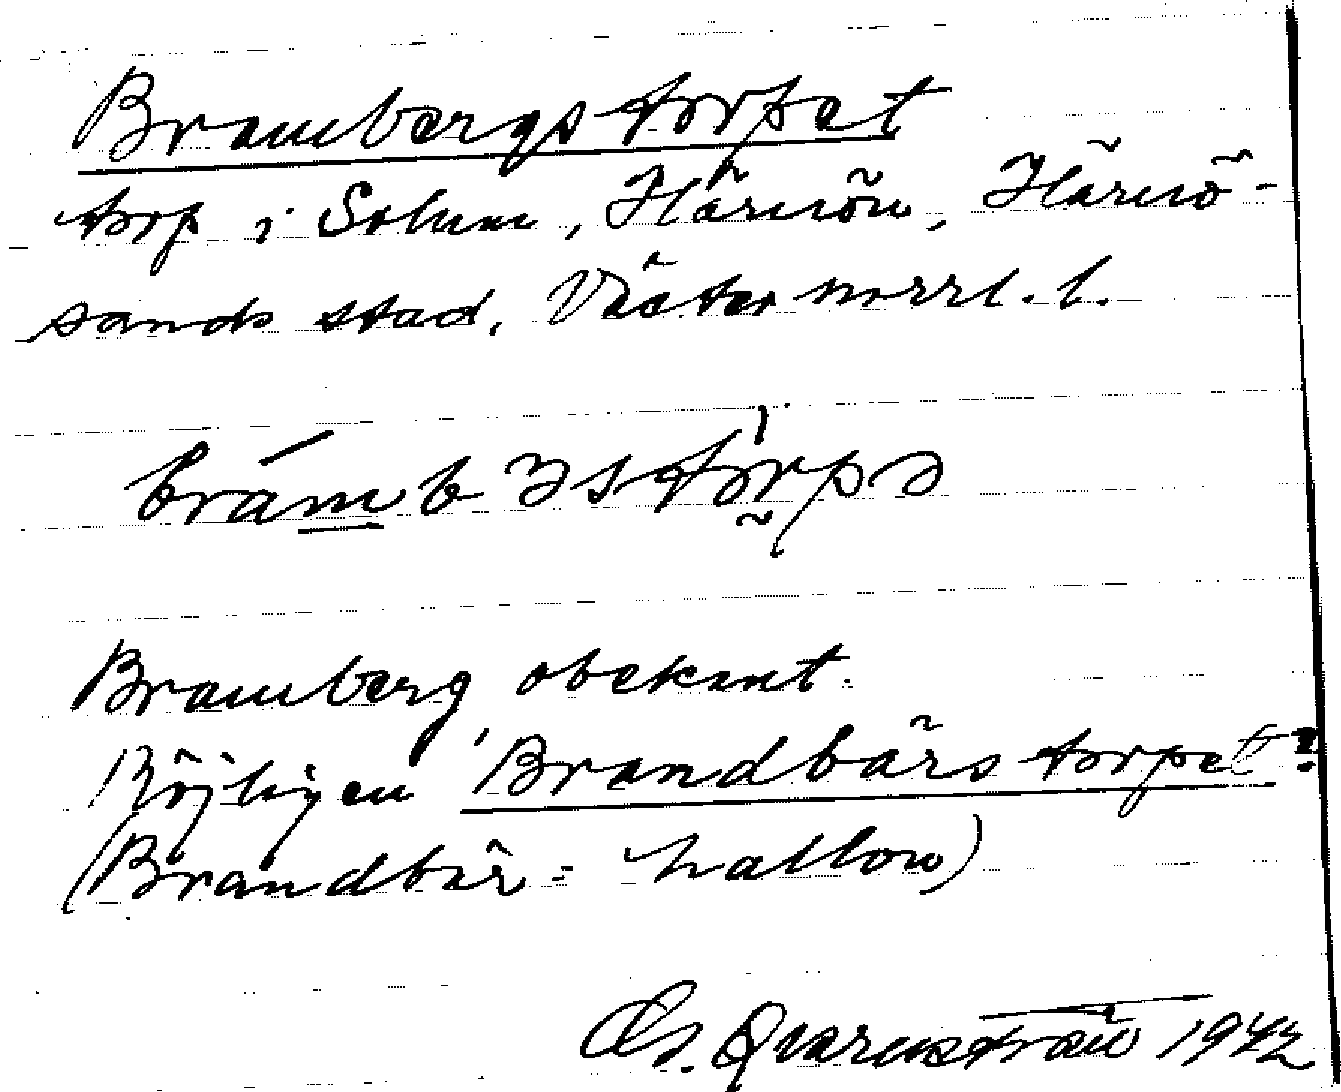 Brambergstorpet
torp i Solum, Härnön, Härnö-
sands stad, Västernorrl. l.
Bramberg obekant.
Möjligen 'Brandbärstorpet?
(Brandbär = hallon)
Qvarnström 1942